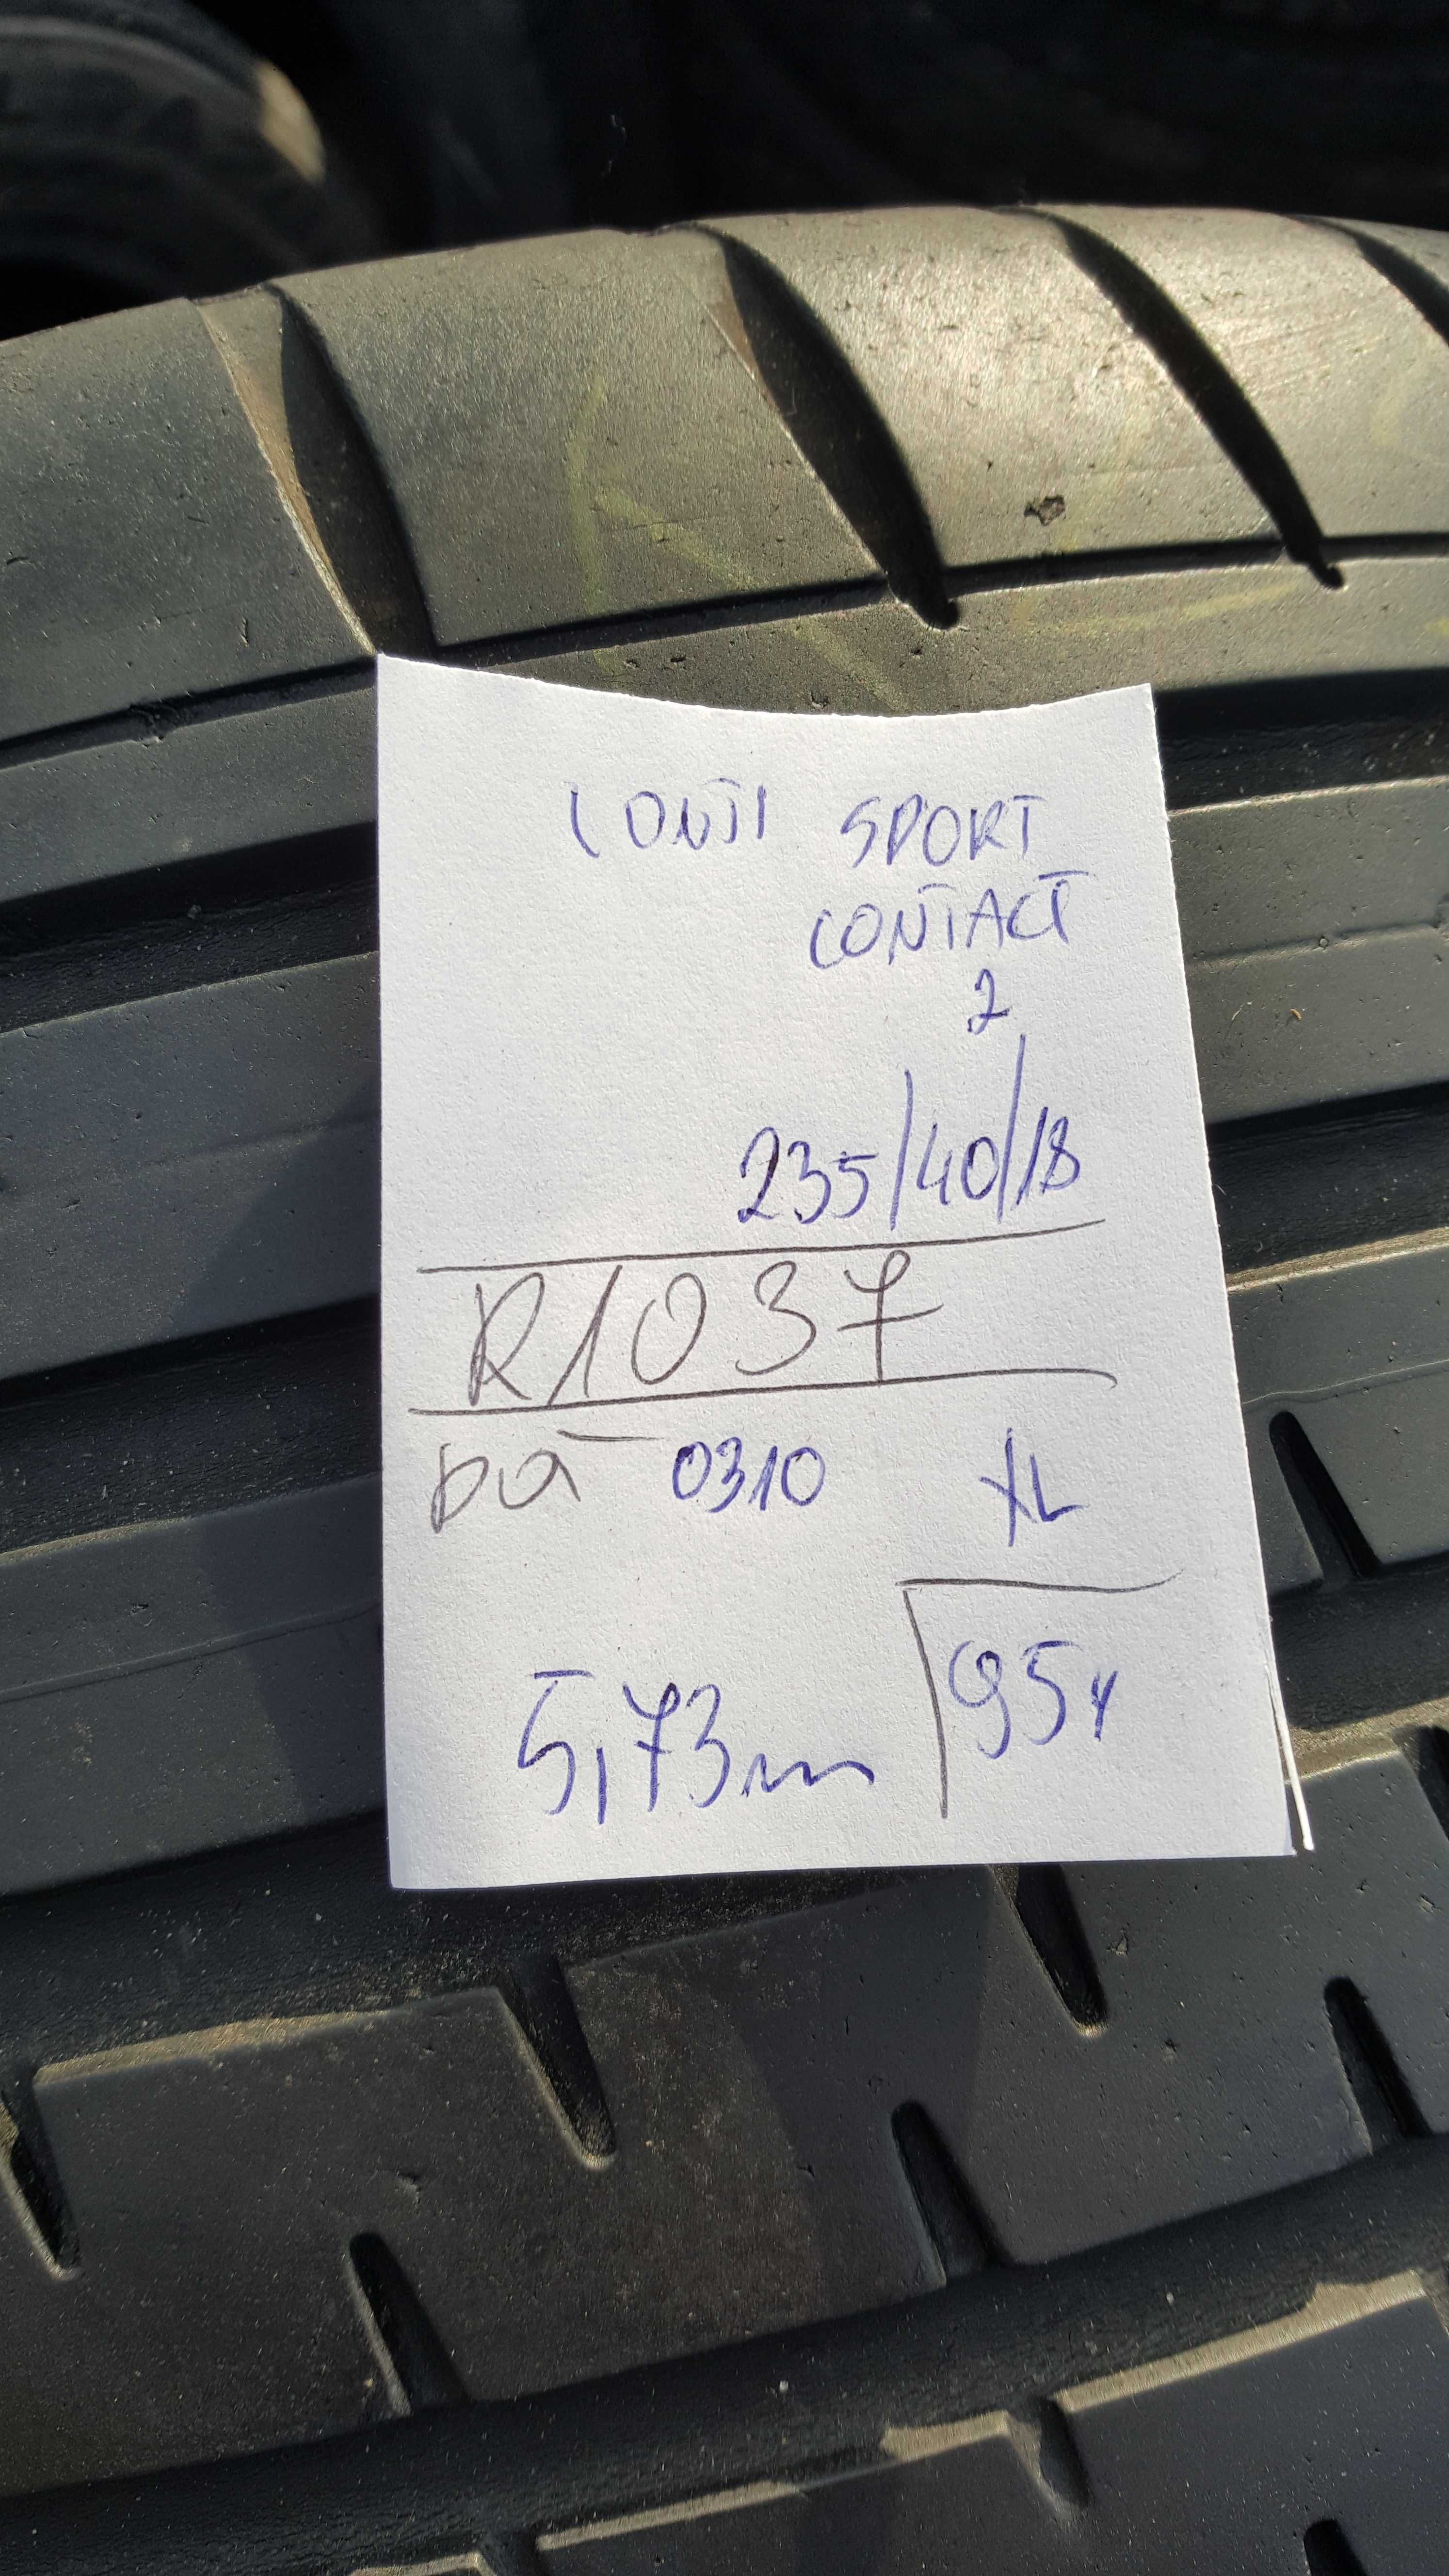 CONTI SPORT
CONTACT
2
235/40/18
R1037
0310 XL
5,73mm 95Y